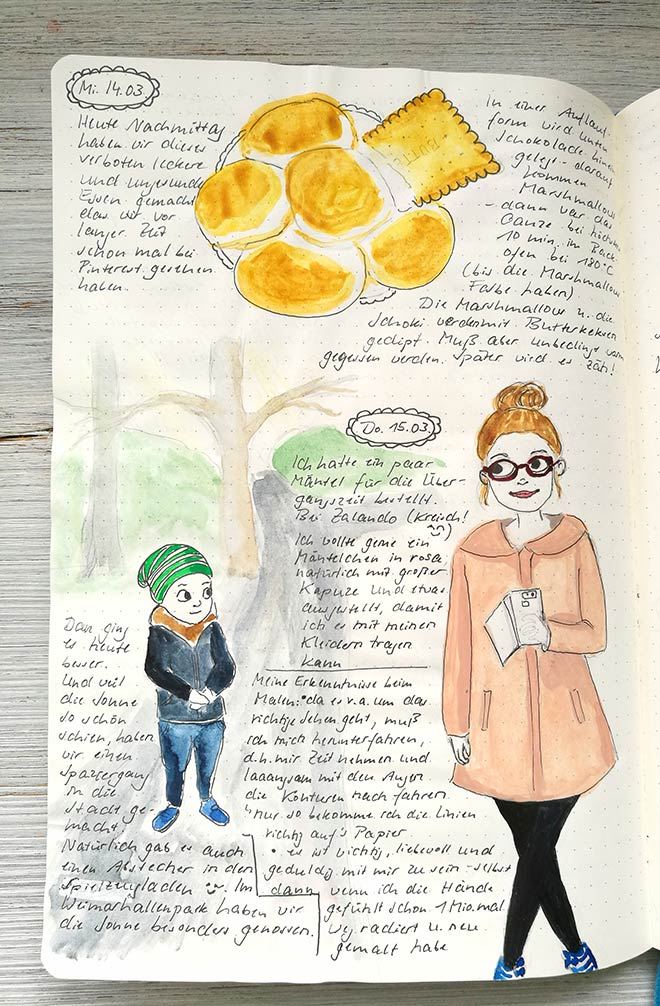 Mi. 14.03.
Heute Nachmittag
haben wir dieses
verboten leckere
und ungesunde
Essen gemacht
das wir vor
langer Zeit
schon mal bei
Pinterest gesehen
haben.
BUTTE
In einer Auflauf-
form wird unten
Schokolade hinein
gelegt - darauf
kommen
Marshmallows
- dann war das
Ganze bei
10 min. im Back
ofen bei 180°C
(bis die Marshmallows
Farbe haben)
Die Marshmallow u. die
Schoki werden mit Butterkeksen
gedipt. Muß aber unbedingt warm
gegessen werden. Später wird es zäh!
Do. 15.03.
Ich hatte ein paar
Mäntel für die Über-
gangszeit bestellt.
Bei Zalando (Kreisch!
Ich wollte gerne ein
Mäntelchen in rosa,
natürlich mit großer
Kapuze und etwas
ausgestellt, damit
ich es mit meinen
Kleidern tragen
kann
Dan ging
es heute
besser.
Und weil
die Sonne
so schön
schien, haben
wir einen
Spaziergang
in die
Stadt ge-
macht.
Natürlich gab es auch
einen Abstecher in den
Spielzeugladen Im
Weimarhallenpark haben wir
die Sonne besonders genossen.
Meine Erkenntnisse beim
Malen: • da es v.a. um das
richtige Sehen geht, muß
ich mich herunterfahren,
d.h. mir Zeit nehmen und
laaangsam mit den Augen
die Konturen nach fahren
nur so bekomme ich die Linien
richtig auf's Papier.
• es ist wichtig, liebevoll und
geduldig mit mir zu sein - selbst
dann wenn ich die Hände
gefühlt schon 1 Mio. mal
weg radiert u. neu
gemalt habe